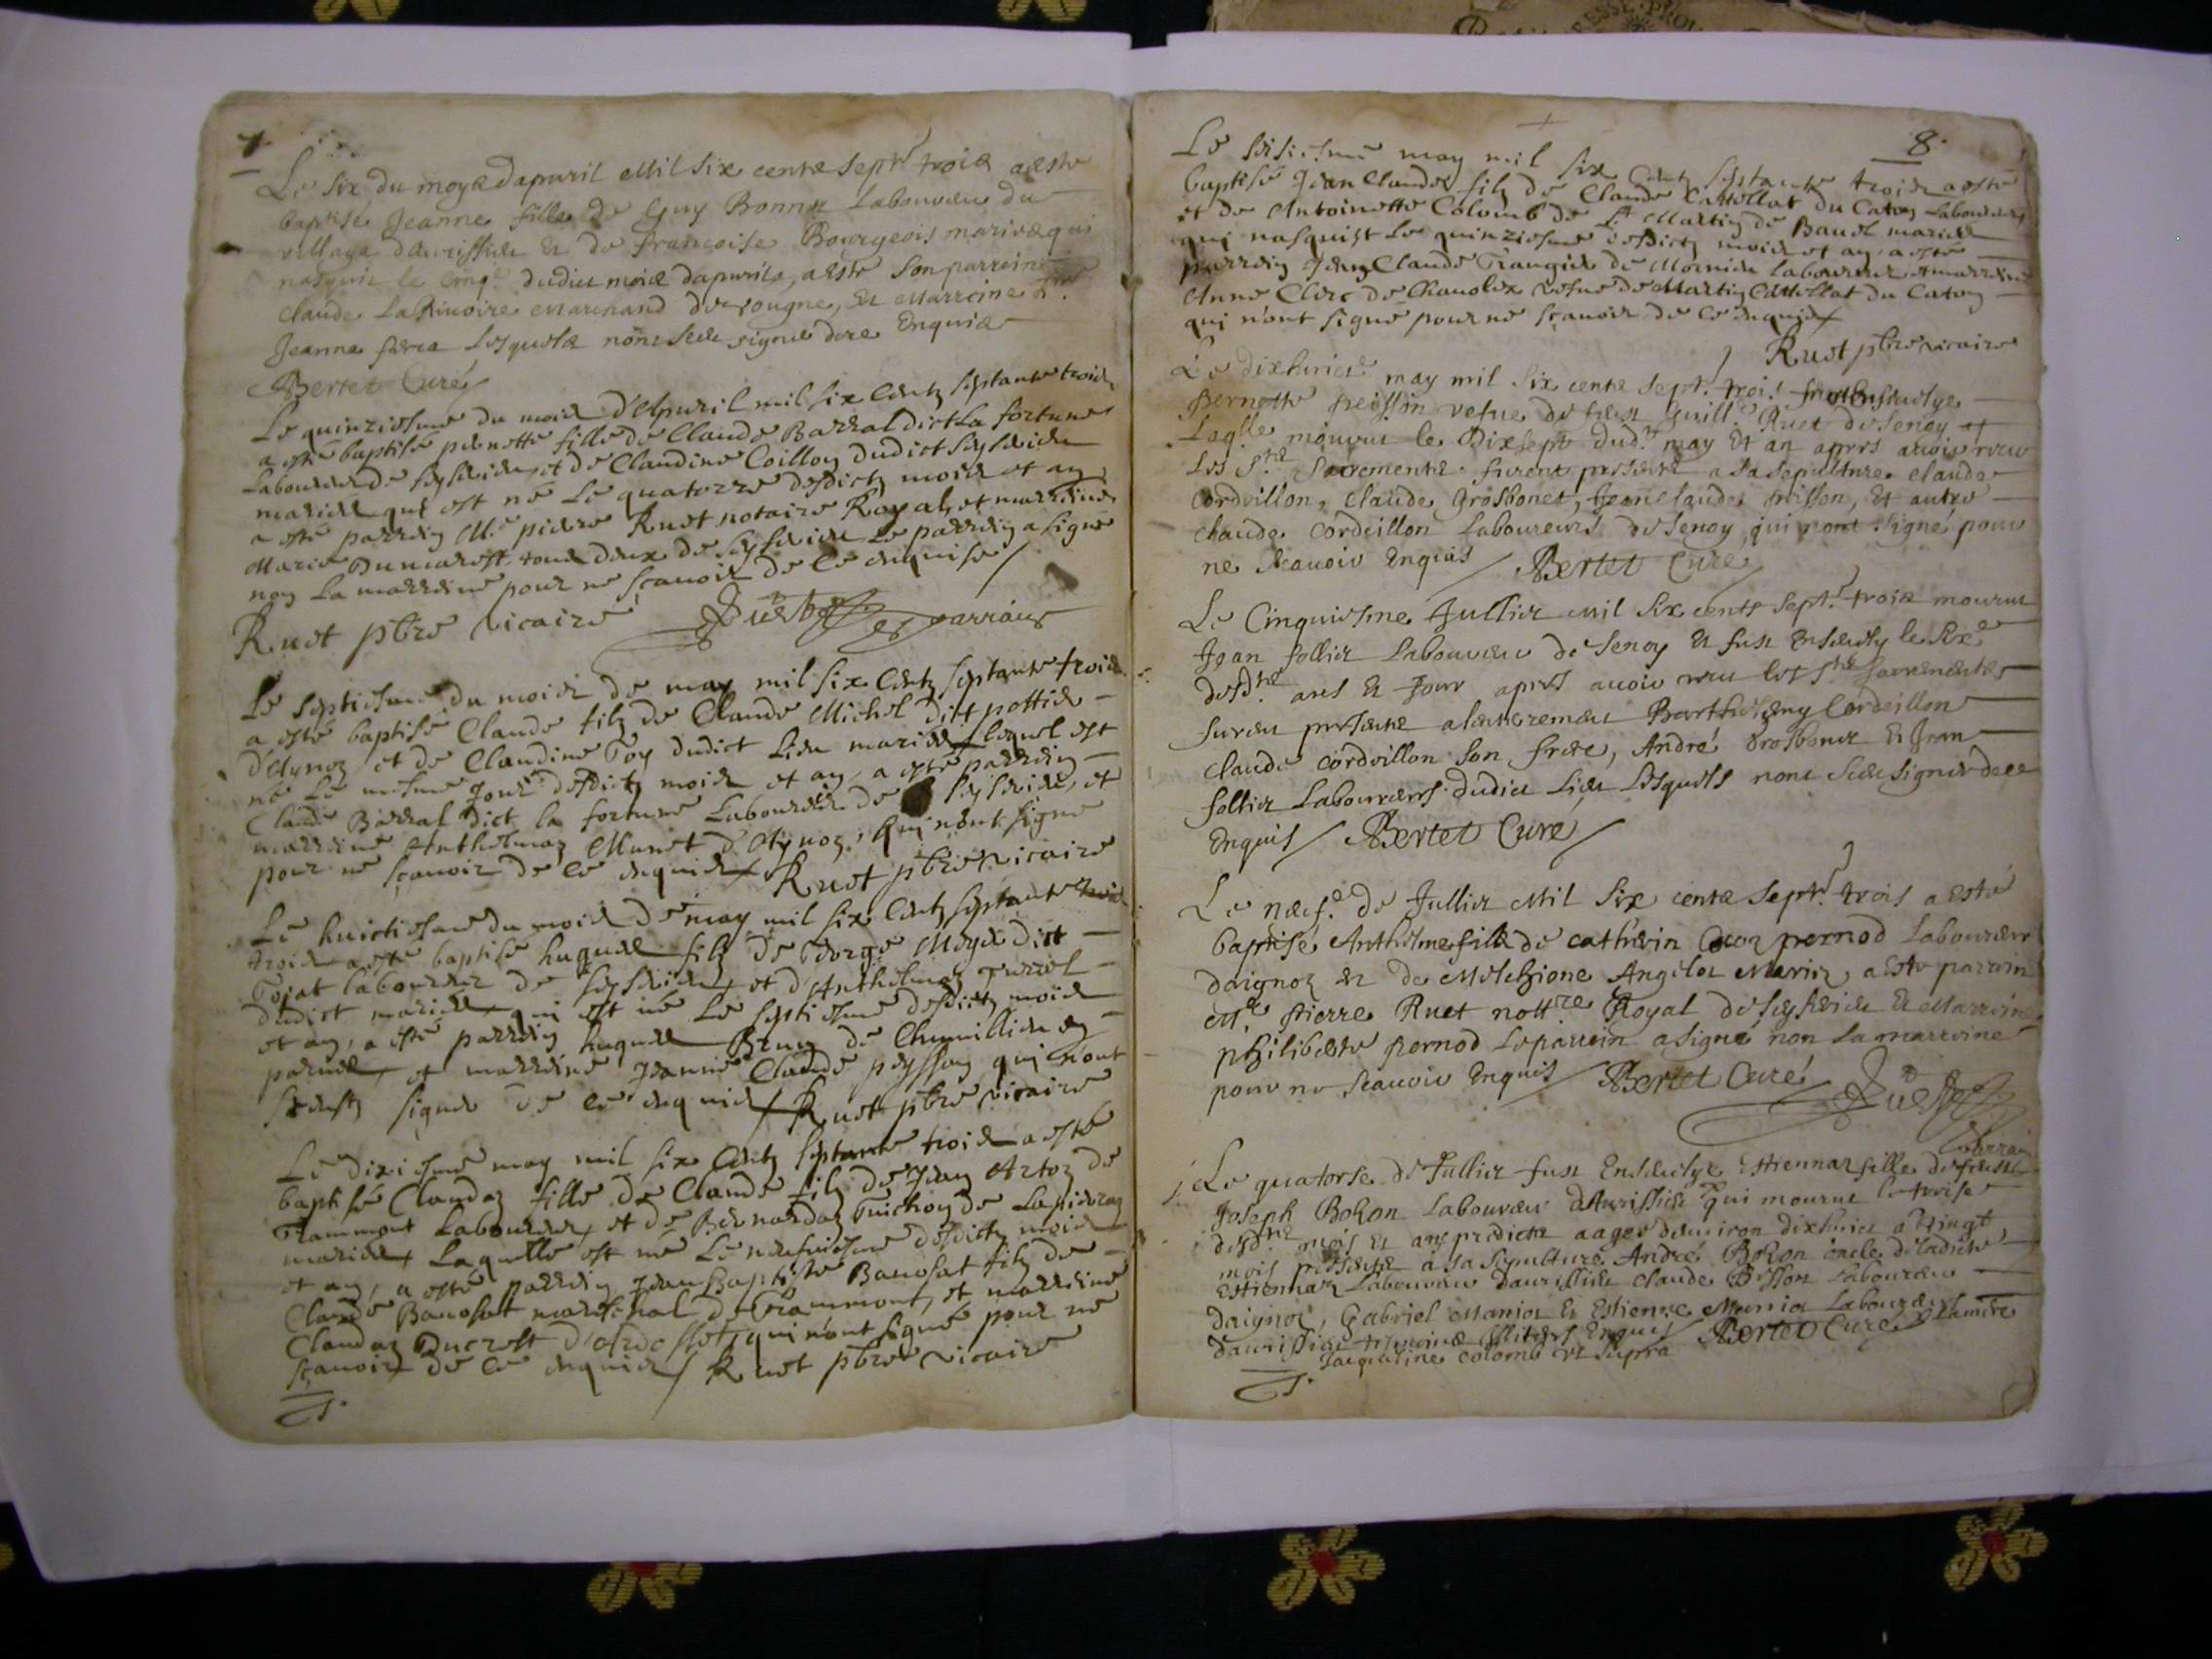 7
Le six du moys dapuril Mil six cents sept.te trois a este
baptise Jeanne fille de Guy Bonnet Laboureur du
village daurissieu et de francoise Bourgeois mariés qui
nasquit le cinq.e dudict mois dapuril, a este son parrein
claude Marchand de et Marreine
Jeanne lesquels nont sceu signer dece Enquis
Bertet Curé
Le quinziesme du moid d'Apuril mil six centz septante troid
a esté baptisé pernette fille de Claude Barral dict La fortune
Laboureur de seyserieu, et de Claudine Coillou dudict seyserieu
mariés qui est né Le quatorze desdictz moid et an
a esté parrein M.e pierre Ruet notaire Royal, et marreine
Marie Ducrest tous deux de seyserieu Le parrein a signé
non La marreine pour ne sçauoir de ce enquise
Ruet pbre vicaire Ruet parrain
Le septiesme du moid de may mil six centz septante troid
a esté baptisé Claude filz de Claude Michel dict pettid
d'Aynoz et de Claudine Toy dudict Lieu mariés lequel est
né Le mesme Jour desdictz moid et an, a esté parrein
Claude Barral dict la fortune Laboureur de seyserieu, et
marreine Anthelmaz Munet d'Aynoz, qui n'ont signé
pour ne sçauoir de ce enquis Ruet pbre vicaire
Le huictiesme du moid de may mil six centz septante troid
troid a esté baptisé hugues filz de George Moyd dict
Tojat laboureur de seyserieu, et d'Anthelmaz Furrel
dudict mariés, qui est né Le septiesme desdictz moid
et an, a esté parrein hugues Brun de Chemillieu en
parues, et marreine Jeanne Claude peysson qui n'ont
signer de ce enquis Ruet pbre vicaire
Le dixiesme may mil six centz septante troid a esté
baptisé Claudaz fille de Claude filz de Jean Artoz de
Grammont Laboureur, et de Bernardaz Guichon de Lapierraz
mariés Laquelle est né Le neufuiesme desdictz moid
et an, a esté parrein Jean Baptiste Banosat filz de
Claude Banosat mareschal de Grammont, et marreine
Claudaz Ducrest d'Ardosset, qui n'ont signé pour ne
sçauoir de ce enquis Ruet pbre vicaire
8.
Le seisiesme may mil six centz septante troid a esté
baptisé Jean Claude filz de Claude Cattellat du Caton Laboureur
et de Antoinette Colomb de S.t Martin de Bauel mariés
qui nasquist Le quinziesme desdictz moid et an, a esté
parrein Jean Claude Trangid de Mornieu laboureur et marreine
Anne Clerc de Chauolex vefue de Martin Cattellat du Caton
qui n'ont signé pour ne sçauoir de ce enquis
Ruet pbre vicaire
Le dixhuict.e may mil six cents sept.te trois fut Enseuelye
Pernette peisson vefue de feu Guill.e Ruet de Senoy
Laq.lle mourut le Dixsept dud. may Et an apres auoir receu
Les S.ts Sacrements furent presents a sa sepulture claude
cordeillon, Claude Grosbonet, Jean claude peisson, Et autre
claude cordeillon Laboureurs de Senoy qui nont signé pour
ne sçauoir Enquis Bertet Curé
Le Cinquiesme Jullier Mil six cents sept.te trois mourut
Jean follier Laboureur de Senoy Et fut Enseuely le six.e
desd.ts ans Et Jour apres auoir receu les S.ts sacrements
furent presents a lenterrement Barthelemy Cordeillon
claude cordeillon son frere, André Grosbonet Et Jean
follier Laboureurs dudict Lieu Lesquels nont sceu signer dece
Enquis Bertet Curé
Le neuf.e de Jullier Mil six cents sept.te trois a Esté
baptisé Anthelme fille de cathérin pernod Laboureur
daignoz et de Melchione Angelot Mariez, a Este parrein
M.e Pierre Ruet nott.re Royal de seyserieu Et Marreine
philiberte pernod Le parrein a signé non La marreine
pour ne sceauoir Enquis Bertet Curé Ruet
parrain
Le quatorse de Jullier fust Enseuelye Estiennaz fille de feu
Joseph Bozon Laboureur daurissieu qui mourut le treise
desd.ts mois Et an predicts aagee denuiron dixhuict a vingt
mois presents a sa sepulture André Bozon oncle deladicte
Estiennaz Laboureur daurissieu claude Bisson Laboureur
daignoz, Gabriel Mannier Et Estienne Mannier Laboureurs
daurissieu tesmoins illiteres Enquis Bertet Curé
Jacqueline colomb vt supra